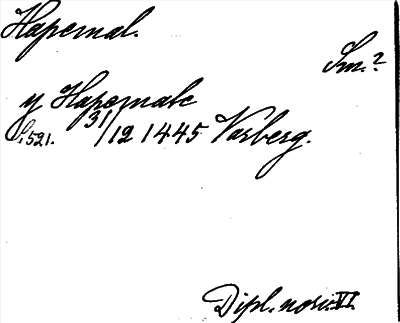 Hapernal.
Sm.?
y Hapernalc
S. 521. 31/12 1445 Varberg.
Dipl. norv. VI.